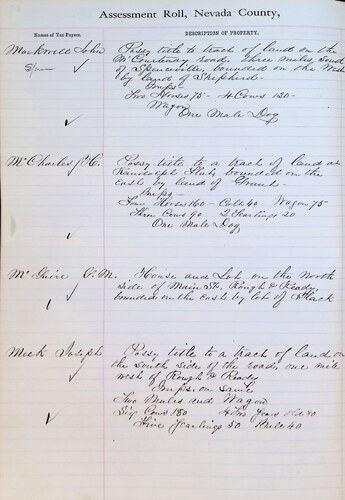 Assessment Roll, Nevada County,
Names of Tax Payers.
DESCRIPTION OF PROPERTY.
Markwell John Possy title to a tract of land on the
McCourtney road, three miles South
of Spenceville bounded on the West
by land of Shepherd.
Imps—
Two Horses 75— 4 Cows 120—
Wagon
One Male Dog
McCharles J. H. Possy title to a tract of land at
Randolph Flat, bounded on the
East by land of Grant—
Imps—
Four Horses 160— Colt 40 Wagon 75
Three Cows 90 2 Yearlings 20
One Male Dog
McGuire C. M. House and Lot on the North
side of Main St. Rough & Ready,
bounded on the East by lot of Black
Meek Joseph Possy title to a tract of land on
the South side of the road, one mile
west of Rough & Ready
Imps. on same
Two Mules and Wagon
Six Cows 180 4 Two Years old 80
Five Yearlings 50 Bull 40